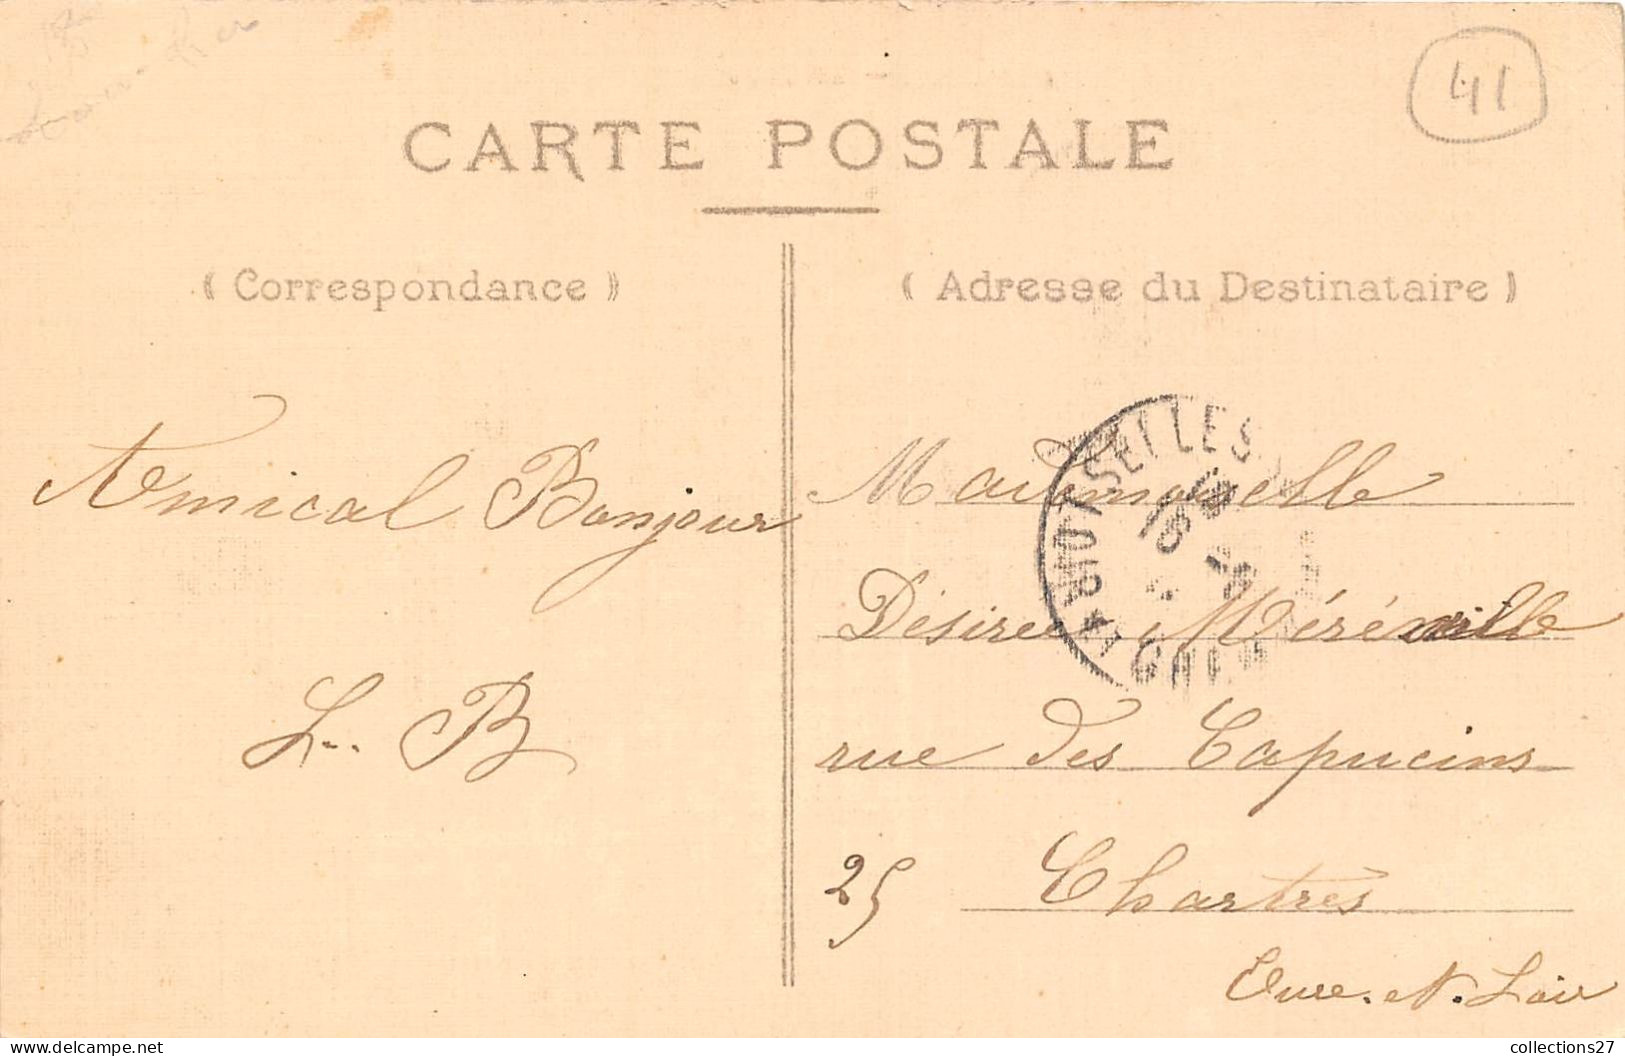 41
CARTE POSTALE
( Correspondance )
( Adresse du Destinataire )
Amical Bonjour
L. B
Mademoiselle
Désirée Méréville
rue des Capucins
25 Chartrès
Eure. et. Loir
collections27